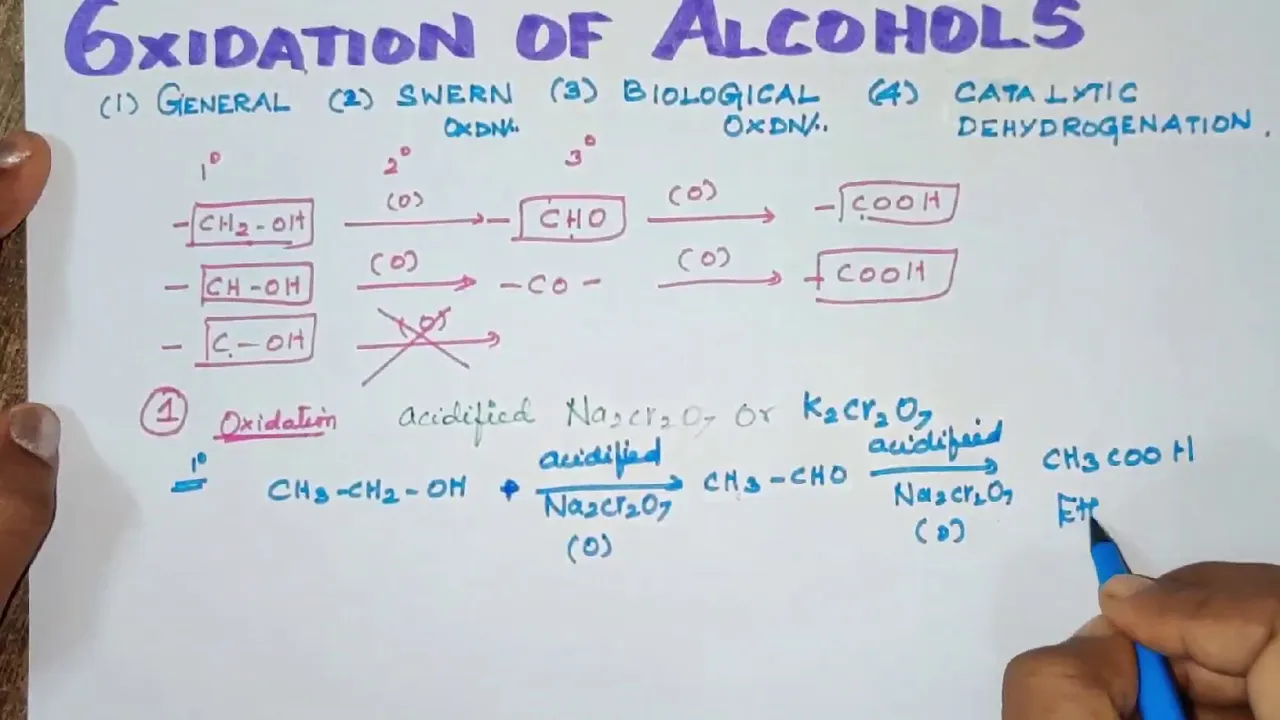 OXIDATION OF ALCOHOLS
(1) GENERAL (2) SWERN OXDN/. (3) BIOLOGICAL OXDN/.. (4) CATALYTIC DEHYDROGENATION.
1° 2° 3°
- CH2-OH (O) - CHO (O) - COOH
- CH-OH (O) -CO- (O) - COOH
- C-OH (O)
1 Oxidation acidified Na2cr2O7 or K2cr2O7
1° CH3-CH2-OH acidified Na2cr2O7 (O) CH3-CHO acidified Na2cr2O7 (O) CH3COOH
Eth